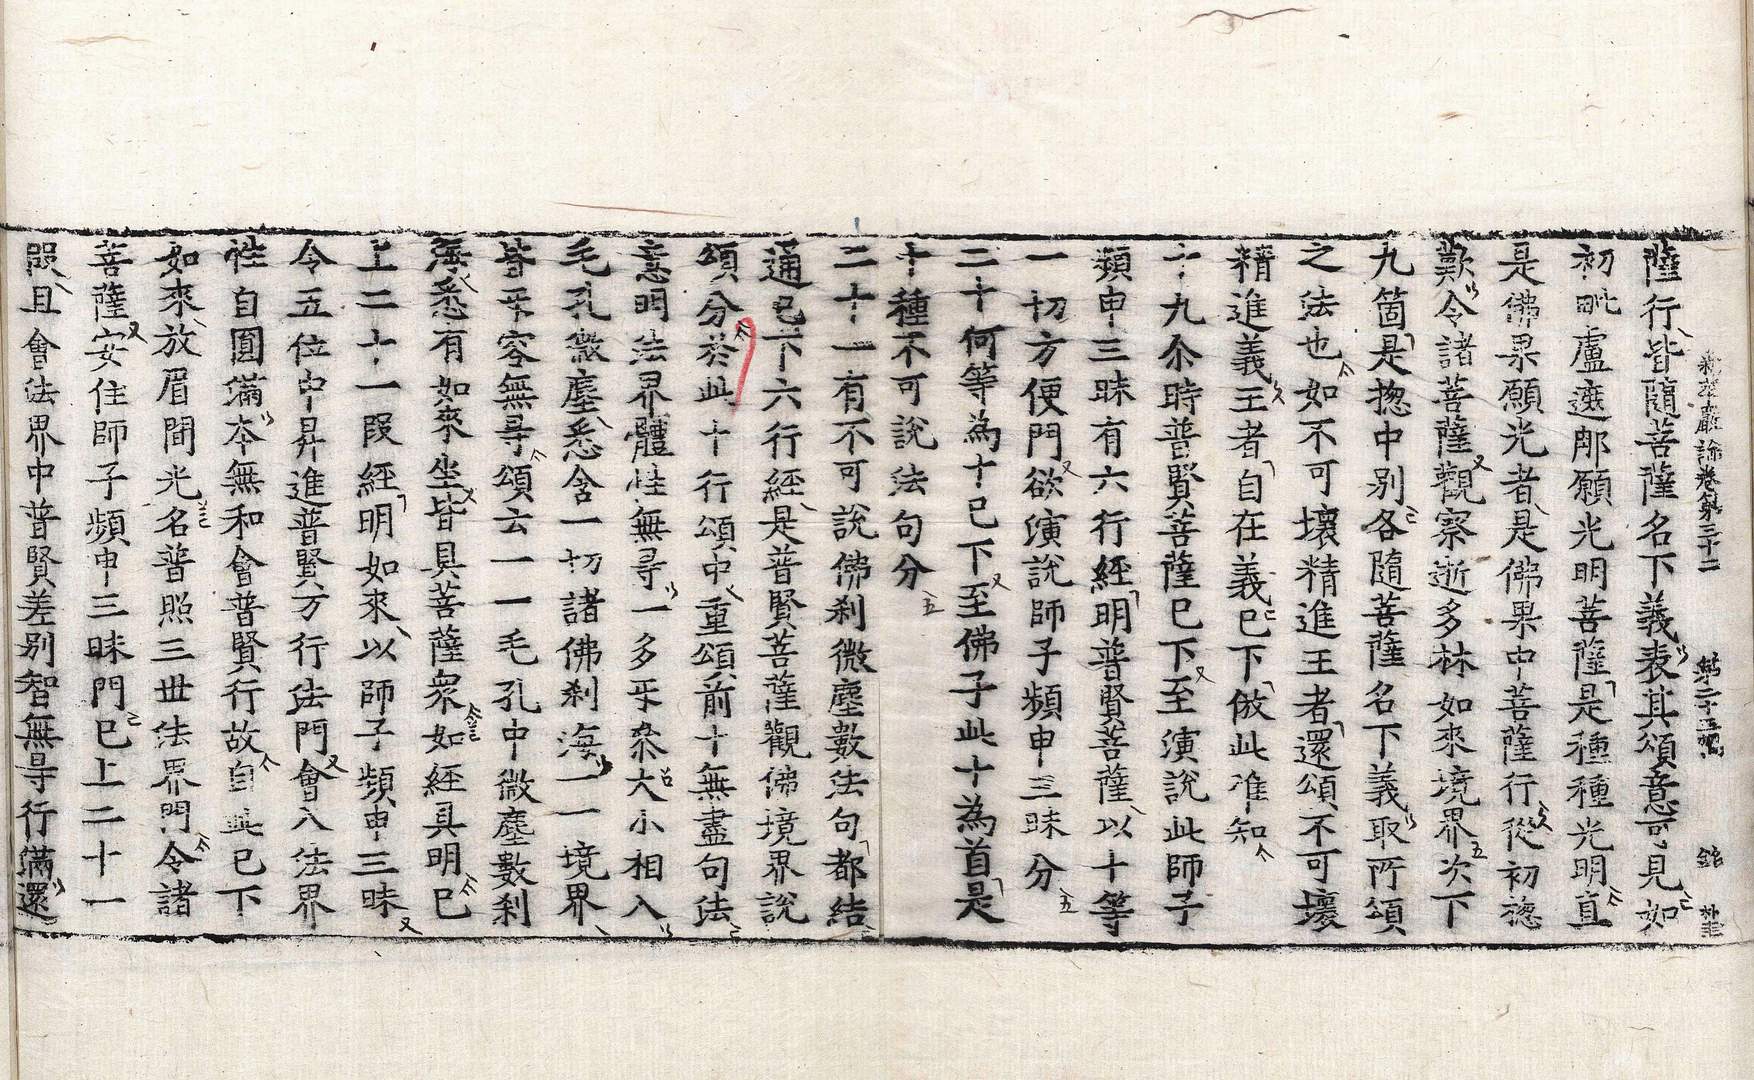 新華嚴論卷第三十二　第二十五張　館　朴圭
薩行皆隨菩薩名下義表其頌意可見如
初毗盧遮那願光明菩薩是種種光明直
是佛果願光者是佛果中菩薩行從初揔
歎令諸菩薩觀察逝多林如來境界次下
九箇是揔中別各隨菩薩名下義取所頌
之法也如不可壞精進王者還頌不可壞
精進義王者自在義已下倣此准知
二十九尒時普賢菩薩已下至演說此師子
頻申三昧有六行經明普賢菩薩以十等
一切方便門欲演說師子頻申三昧分
三十何等為十已下至佛子此十為首是
十種不可說法句分
二十一有不可說佛刹微塵數法句都結
通已下六行經是普賢菩薩觀佛境界說
頌分於此十行頌中重頌前十無盡句法
意明法界體性無㝵一多互叅大小相入
毛孔微塵悉含一切諸佛刹海一一境界
皆互容無㝵頌云一一毛孔中微塵數刹
海悉有如來坐皆具菩薩衆如經具明已
上二十一段經明如來以師子頻申三昧
令五位中昇進普賢万行法門會入法界
性自圓滿本無和會普賢行故自此已下
如來放眉間光名普照三世法界門令諸
菩薩安住師子頻申三昧門已上二十一
段且會法界中普賢差別智無㝵行滿還